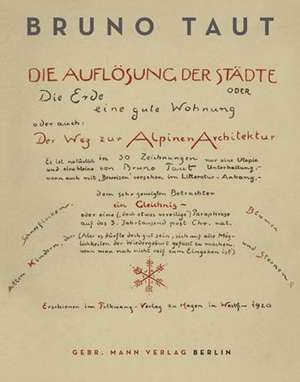 BRUNO TAUT
DIE AUFLÖSUNG DER STÄDTE
ODER
Die Erde
eine gute Wohnung
oder auch:
Der Weg zur Alpinen Architektur
Es ist natürlich in 30 Zeichnungen nur eine Utopie
und eine kleine von Bruno Taut Unterhaltung-
wenn auch mit „Beweisen versehen im Litteratur-Anhang-
dem sehr geneigten Betrachter
ein Gleichnis-
oder eine (doch etwas voreilige) Paraphrase
auf das 3. Jahrtausend post Chr. nat.
(Aber es dürfte doch gut sein, sich auf alle Mög-
lichkeiten der Wiedergeburt gefasst zu machen,
wenn man noch nicht reif zum Eingehen ist)
Allen Kindern, der
Bäumen
und Sternen
Erschienen im Folkwang-Verlag zu Hagen im Westfn 1920
GEBR. MANN VERLAG BERLIN